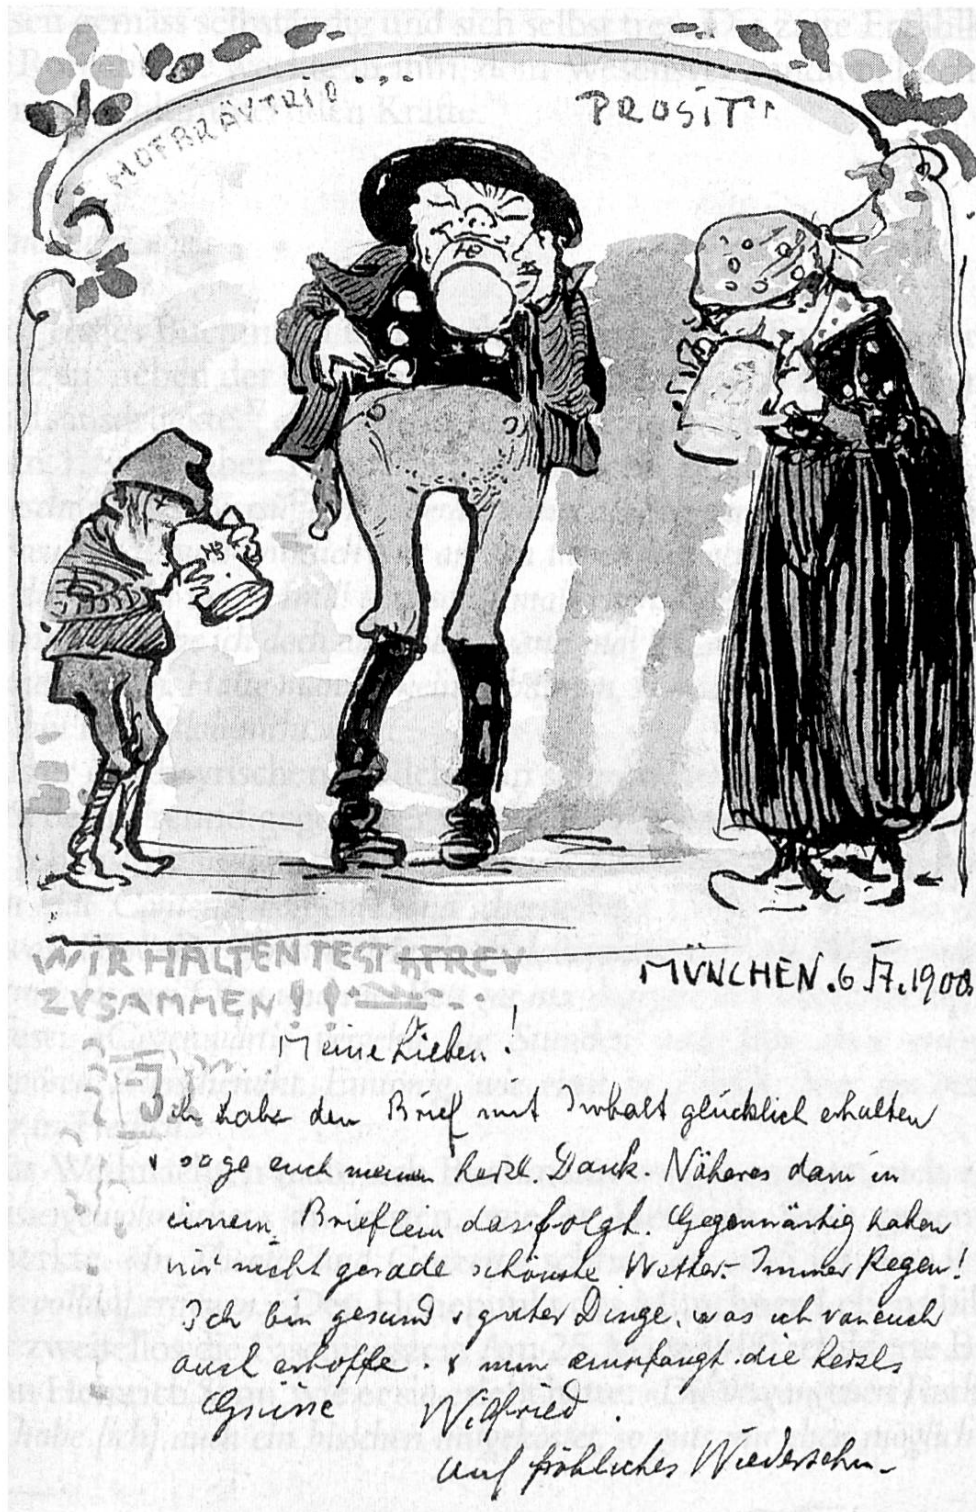 HOFBRÄVTRIO...
PROSIT
HB
HB
WIR HALTEN FEST & TREV
ZVSAMMEN!!
MÜNCHEN. 6. 1900
Meine Lieben!
Ich habe den Brief mit Inhalt glücklich erhalten
& sage euch meinen herzl. Dank. Näheres dann in
einem Brieflein das folgt. Gegenwärtig haben
wir nicht gerade schönste Wetter. Immer Regen!
Ich bin gesund & guter Dinge, was ich von euch
auch erhoffe. & nun empfangt die herzl.
Grüsse Wilfried.
Auf fröhliches Wiedersehn